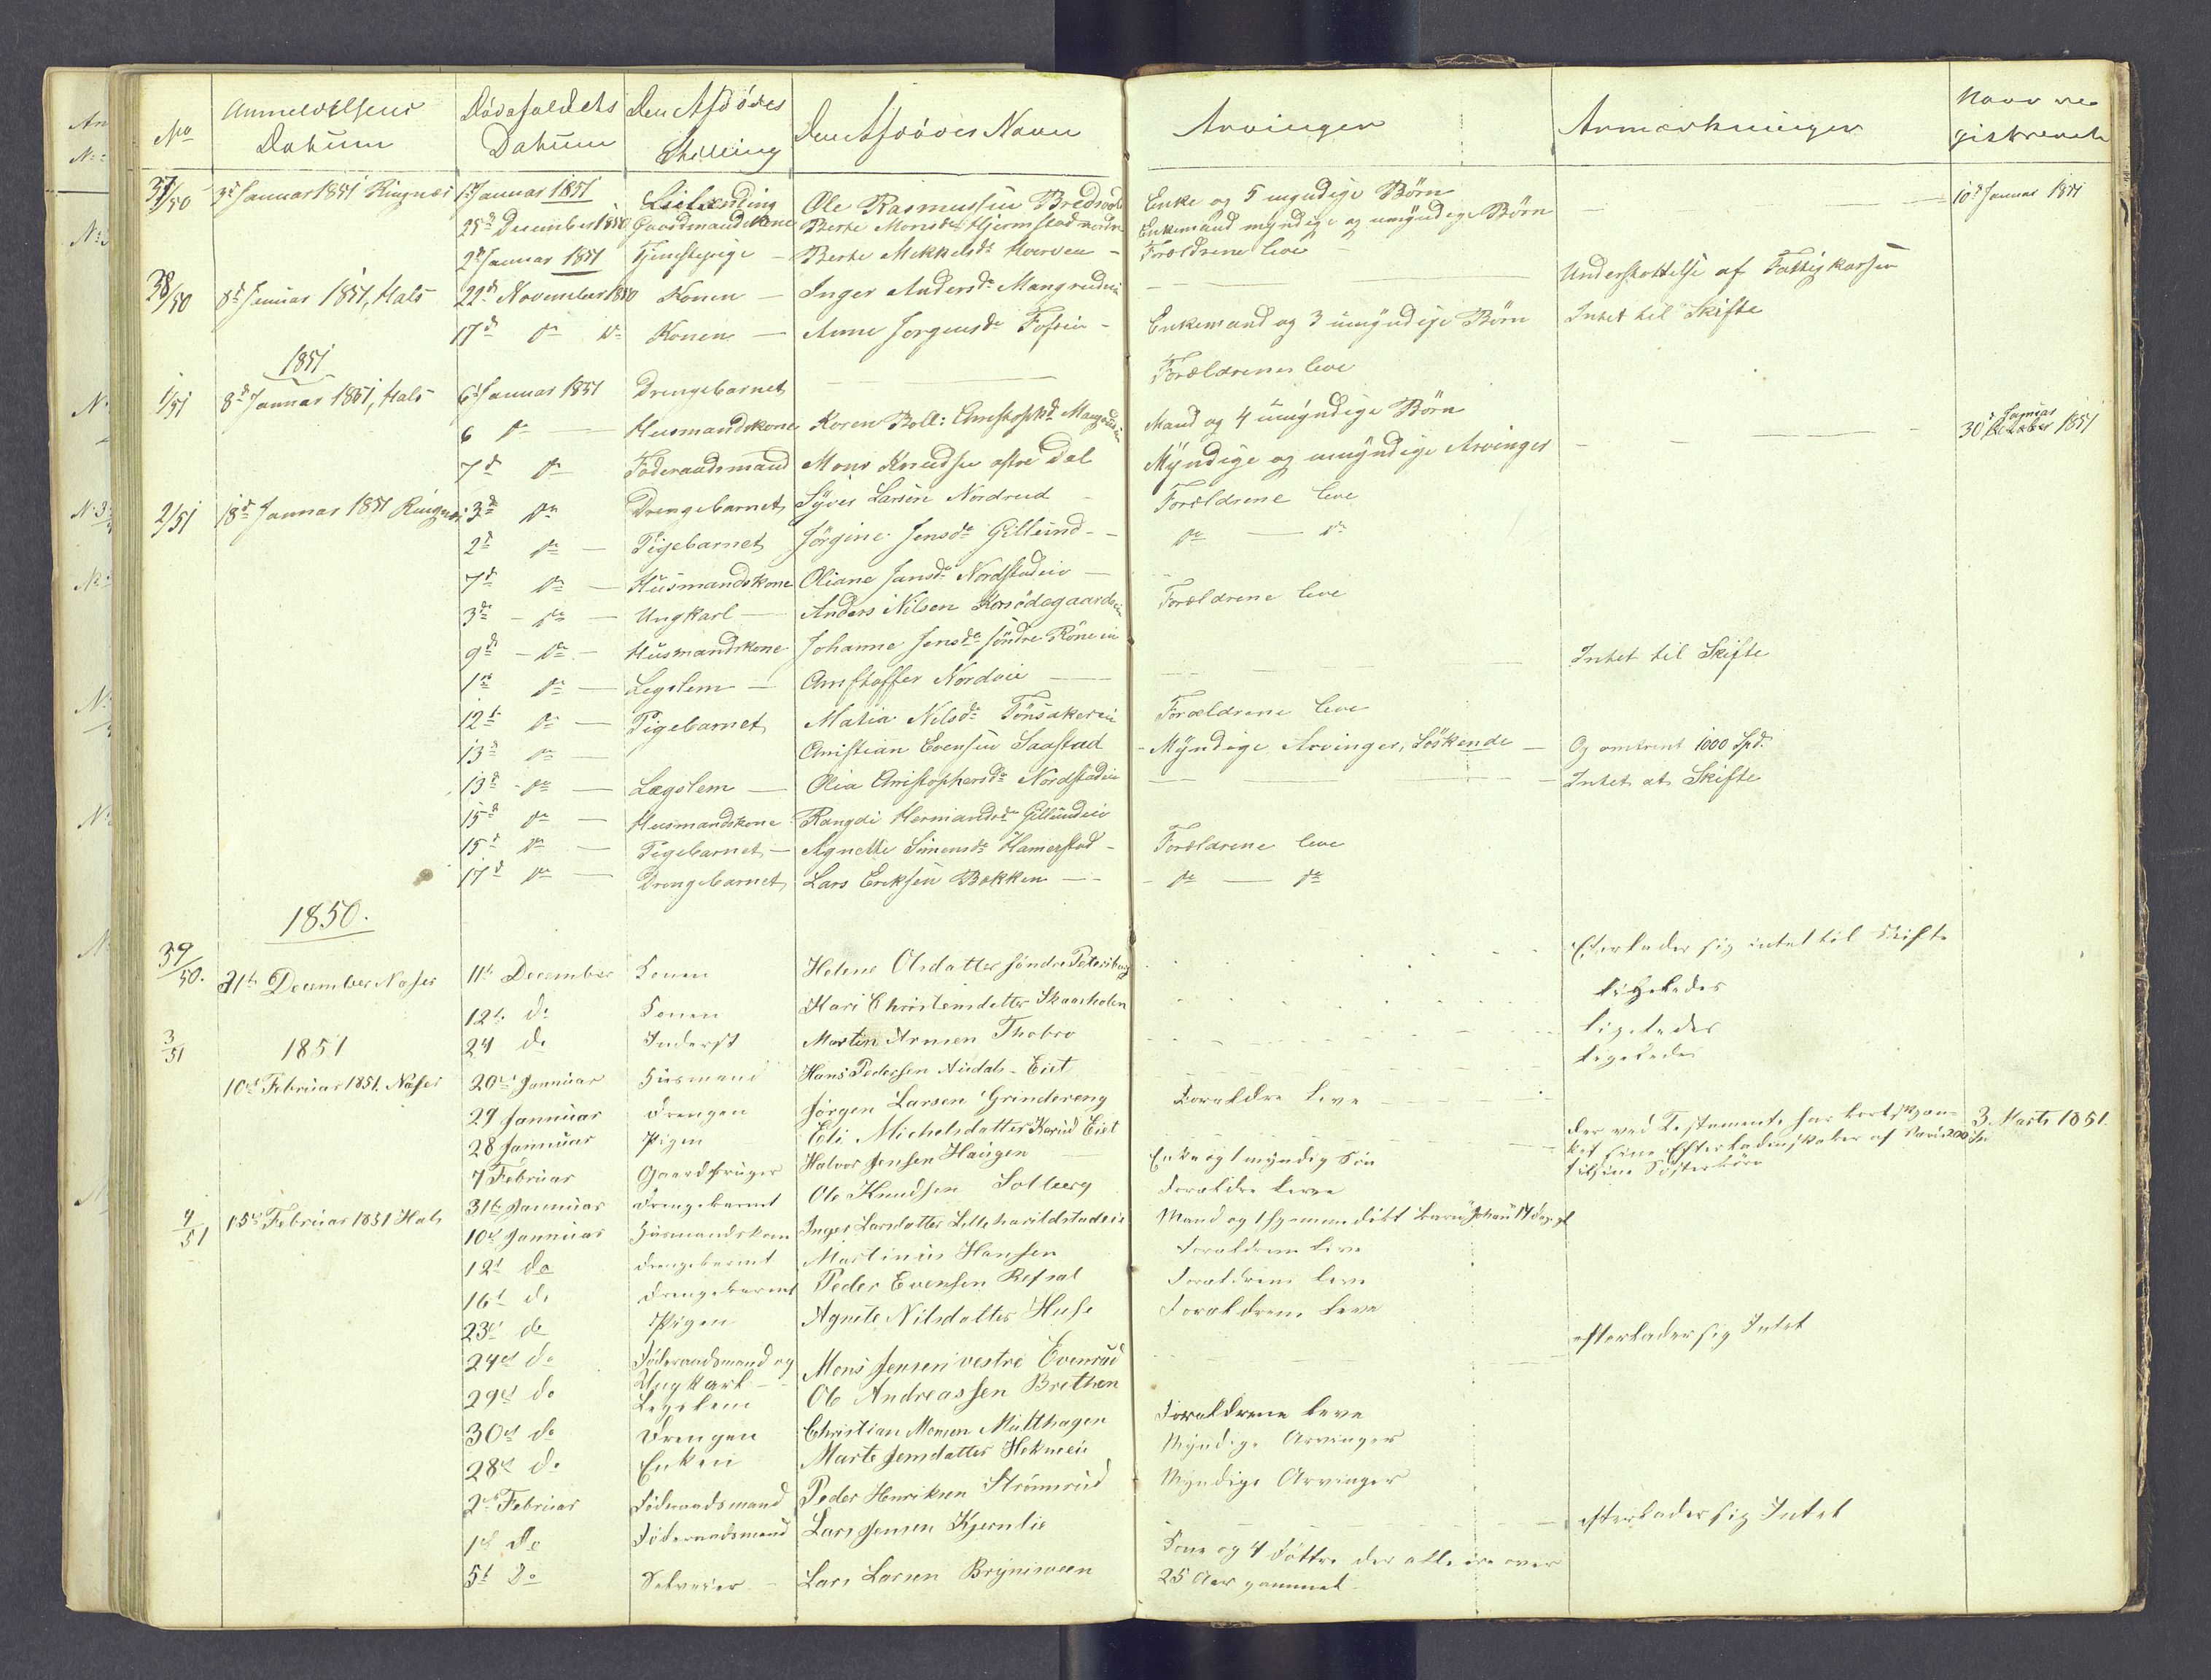 No Anmeldelsens Datum Dødsfaldets Datum Den Afdødes Stilling Den Afdødes Navn Arvinger Anmærkninger Naar registreret
37/50 3d Januar 1851 Ringnæs 1st Januar 1851 Leilending Ole Rasmussen Bredvold Enke og 5 umyndige Børn 10d Januar 1851
25d December 1850 Gaardmandskone Berte Monsdr Hjermstad nordre Enkemand myndige og umyndige Børn
2d Januar 1851 Tjenestepige Berte Mikkelsdr Kverven Forældrene leve
38/50 8d Januar 1851, Hals 22d November 1850 Konen Inger Andersdr Mangrudeie Understøttelse af Fattigkassen
17d do do Konen Anne Jørgensdr Fosseie Enkemand og 3 umyndige Børn Intet til Skifte
1851
1/51 8d Januar 1851, Hals 6d Januar 1851 Drengebarnet Forældrene leve
6 do Husmandskone Karen Boll: Christophdr Mand og 4 umyndige Børn
7d do Føderaadsmand Mons Knudsen østre Dal Myndige og umyndige Arvinger 30d Januar 1851
2/51 18d Januar 1851 Ringnæs 3d do Drengebarnet Syver Larsen Nordrud Forældrene leve
2d do Pigebarnet Jørgine Jensdr Gillund do do
7d do Husmandskone Oliane Jansdr Nordstadeie
3d do Ungkarl Anders Nilsen Korsødegaardseie Forældrene leve
9d do Husmandskone Johanne Jensdr søndre Røneeie
1st do Legslem Christoffer Nordeie Intet til Skifte
12t do Pigebarnet Matia Nilsdr Tønsakereie Forældrene leve
13d do Christian Evensen Saastad Myndige Arvinger, Söskende Og omtrent 1000 Spd.
13d do Lægslem Olia Christophersdr Nordstadeie Intet at Skifte
15d do Husmandskone Rangdi Hermandsdr Gillundeie
15d do Pigebarnet Agnette Simensdr Hamerstad Forældrene leve
17d do Drengebarnet Lars Eriksen Bakken do do
1850.
39/50. 21de December Næsset 11te December Konen Helene Olsdatter søndre Petersberg Efterlader sig intet til Skifte
12te do Konen Kari Christensdatter Skaarholen ligeledes
3/51 1851 24 do Inderst Martin Arnesen Thobro ligeledes
10de Februar 1851. Næsset 20de Januar Husmand Hans Pedersen Audals-Eiet ligeledes
29 Januar Drengen Jørgen Larsen Grindereng Forældre leve
28 Januar Pigen Eli Michelsdatter Karud Eiet
7 Februar Gaardbruger Halvor Jensen Haugen Enke og 1 myndig Søn der ved Testamente har bortskjænket sine Efterladenskaber til sine Søsterbørn 3. Marts 1851.
31te Januar Drengebarnet Ole Knudsen Solberg Forældre leve
4/51 15de Februar 1851 Hals 10de Januar Husmandskone Inger Larsdatter Lilleharildstadeie Mand og 1 barn Johan 14 Dage gl
12t do Drengebarnet Martinus Hansen Forældrene leve
16t do Drengebarnet Peder Evensen Refsal Forældrene leve
23de do Pigen Agnete Nilsdatter Huse Forældrene leve
24de do Føderaadsmand og Ungkarl Mons Jensen vestre Evenrud efterlader sig Intet
29de do Legslem Ole Andreassen Brethen
30de do Drengen Christian Monsen Multhagen Forældrene leve
28de do Enken Marte Jensdatter Hekneeie Myndige Arvinger
2de Februar Føderaadsmand Peder Henriksen Strømsrud Myndige Arvinger
1st do Føderaadsmand Lars Jensen Kjernlie efterlader sig Intet
5t do Selveier Lars Larsen Brynisveen Kone og 4 Døttre der alle ere over
25 Aar gammel